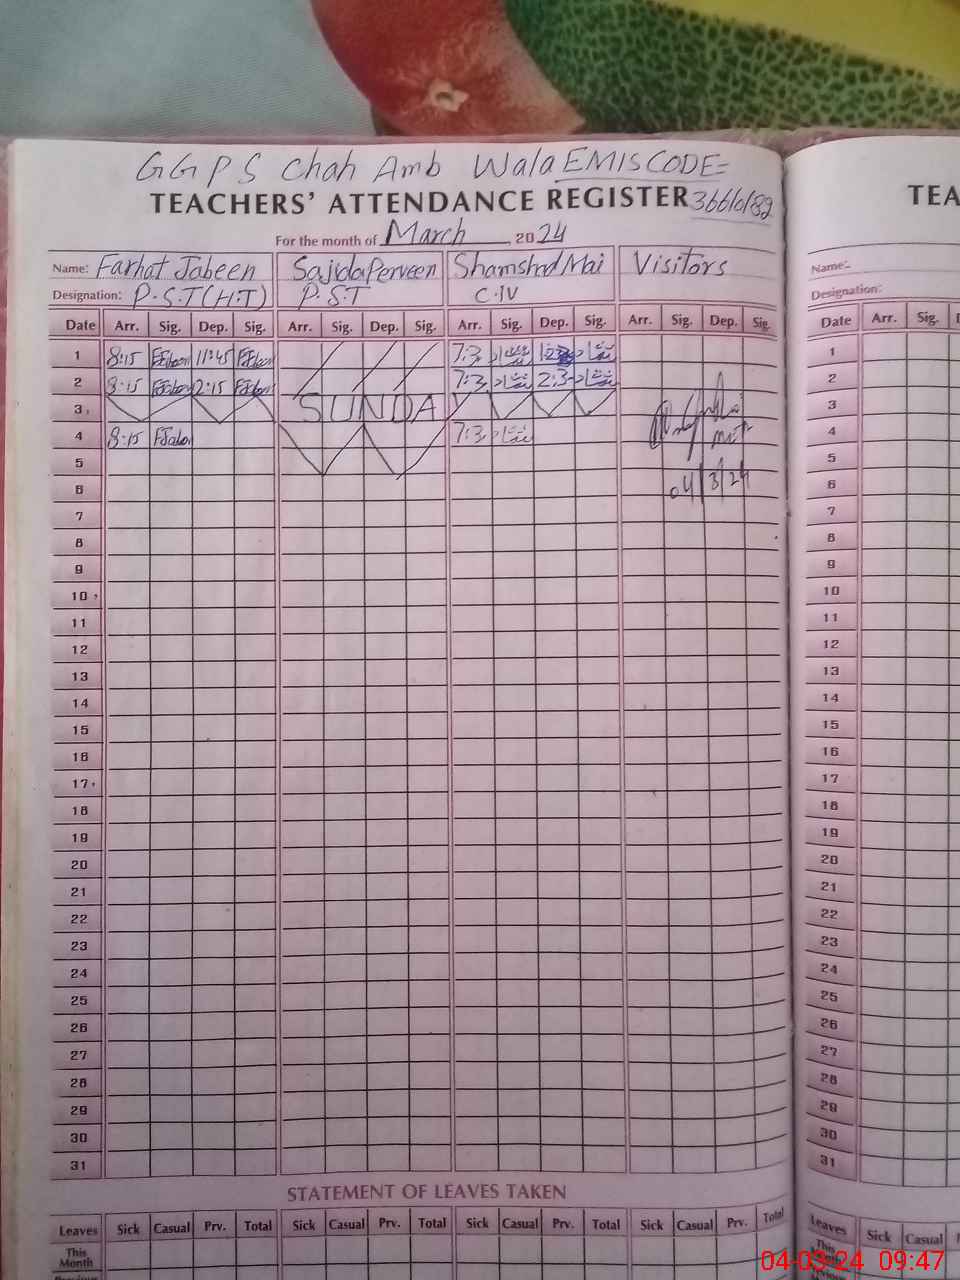 GGPS Chah Amb Wala EMIS CODE=
TEACHERS' ATTENDANCE REGISTER
TEA
For the month of March 2024
Name: Farhat Jabeen Sajida Perveen Shamshad Mai Visitors
Name:
Designation: P.S.T (H.T) P.S.T C.IV
Designation:
Date Arr. Sig. Dep. Sig. Arr. Sig. Dep. Sig. Arr. Sig. Dep. Sig. Arr. Sig. Dep. Sig.
Date Arr. Sig.
1 8:15 FJabeen 11:45 FJabeen 7:3 1
2 8:15 FJabeen 2:15 FJabeen 7:3 2:3 2
3 SUNDAY 3
4 8:15 FJabeen 7:3 4
5 5
6 04/3/24 6
7 7
8 8
9 9
10 10
11 11
12 12
13 13
14 14
15 15
16 16
17 17
18 18
19 19
20 20
21 21
22 22
23 23
24 24
25 25
26 26
27 27
28 28
29 29
30 30
31 31
STATEMENT OF LEAVES TAKEN
Leaves Sick Casual Prv. Total Sick Casual Prv. Total Sick Casual Prv. Total Sick Casual Prv. Total
Leaves Sick Casual
This
Month
This
04-03-24 09:47